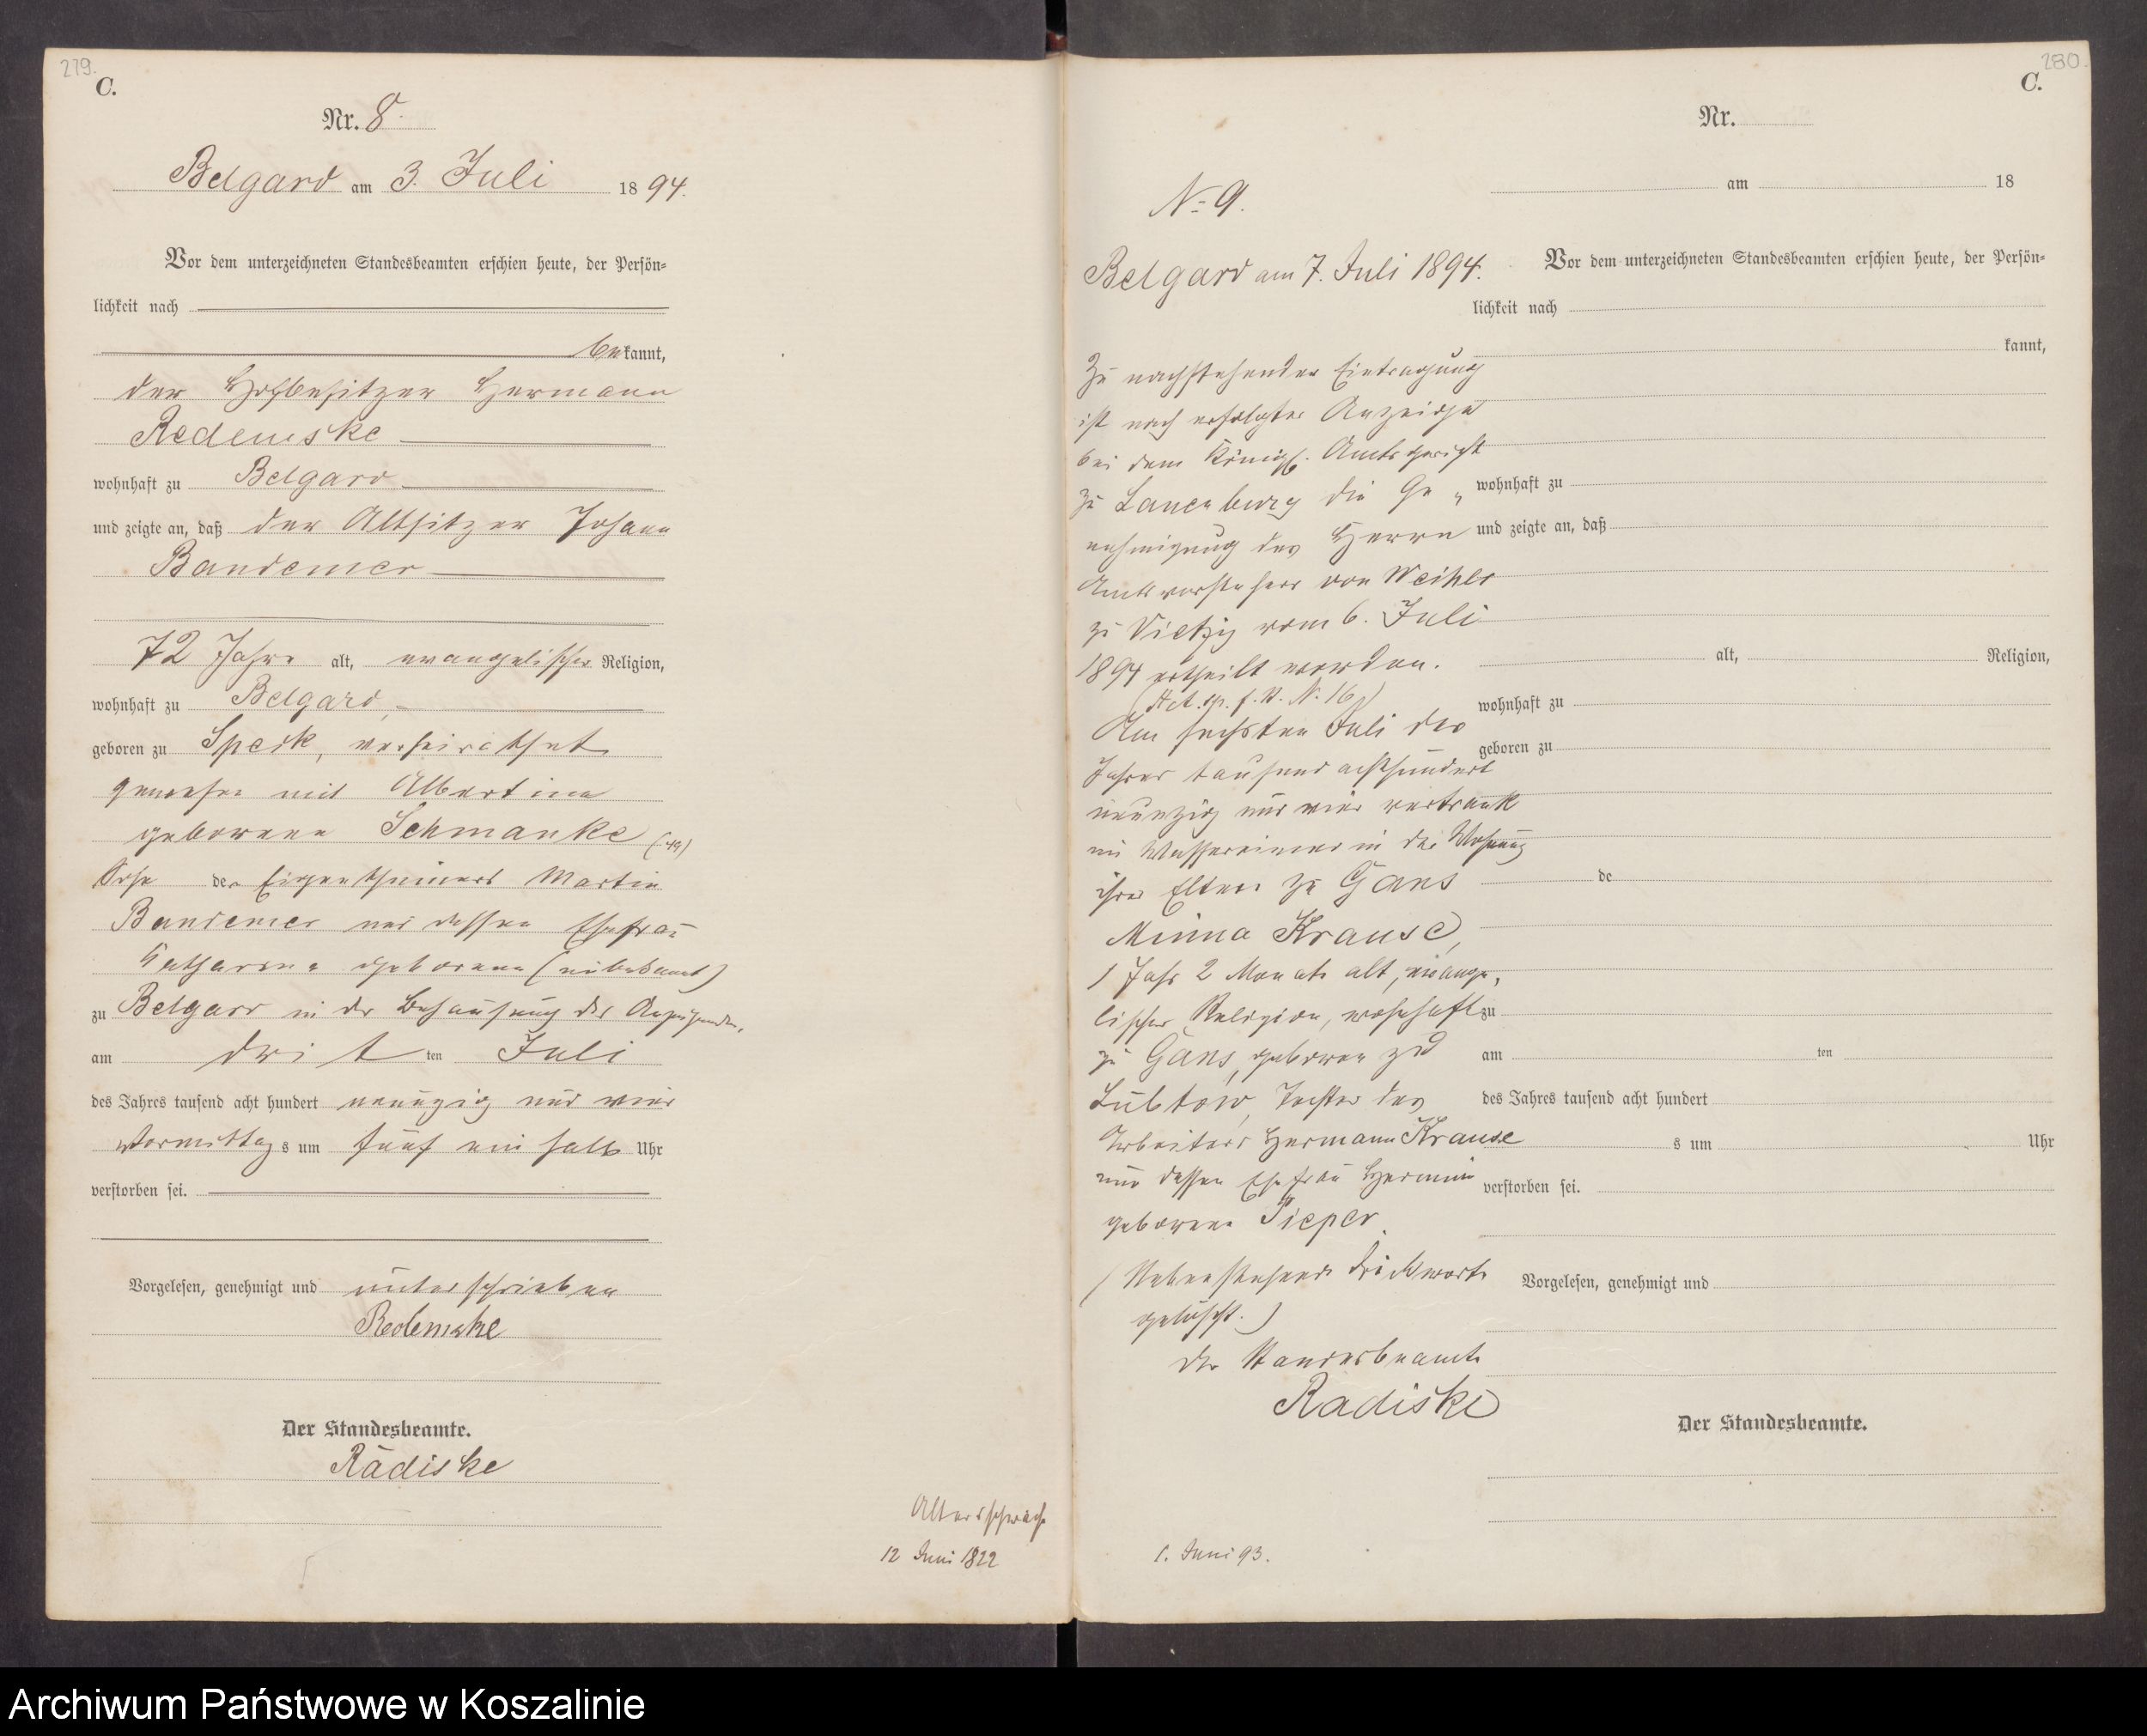 279.
C.
Nr. 8.
Belgard am 3. Juli 1894.
Vor dem unterzeichneten Standesbeamten erschien heute, der Persön-
lichkeit nach
bekannt,
der Hofbesitzer Hermann
Redemske
wohnhaft zu Belgard
und zeigte an, daß der Altsitzer Johann
Bandemer
72 Jahre alt, evangelischer Religion,
wohnhaft zu Belgard,
geboren zu Speck, verheirathet
gewesen mit Albertine
geborene Schmanke (49)
Sohn des Eigenthümers Martin
Bandemer und dessen Ehefrau
Katharina geborene (unbekannt)
zu Belgard in der Behausung des Anzeigenden,
am drit ten Juli
des Jahres tausend acht hundert neunzig und vier
Vormittag s um fünf ein halb Uhr
verstorben sei.
Vorgelesen, genehmigt und unterschrieben
Redemske
Der Standesbeamte.
Rädiske
Altersschwäche
12 Juni 1822
280.
C.
Nr.
am 18
No 9.
Belgard am 7. Juli 1894.
Vor dem unterzeichneten Standesbeamten erschien heute, der Persön-
lichkeit nach
kannt,
Zu nachstehender Eintragung
ist nach erfolgter Anzeige
bei dem Königl. Amtsgericht
zu Lauenburg die Ge„
wohnhaft zu
nehmigung des Herrn
und zeigte an, daß
Amtsvorstehers von Weiher
zu Vietzig vom 6. Juli
1894 ertheilt worden.
alt, Religion,
No. 16
wohnhaft zu
Am sechsten Juli des
geboren zu
Jahres tausend achthundert
neunzig und vier ertrank
im Wassereimer in der Wohnung
ihrer Eltern zu Gans
de
Minna Krause,
1 Jahr 2 Monate alt, evange„
lischer Religion, wohnhaft
zu
zu Gans, geboren zu
am ten
Lübtow, Tochter des
des Jahres tausend acht hundert
Arbeiters Hermann Krause
s um Uhr
und dessen Ehefrau Hermine
verstorben sei.
geborene Pieper.
(Nebenstehende Druckworte
Vorgelesen, genehmigt und
gelöscht.)
Der Standesbeamte
Rädiske
Der Standesbeamte.
1. Juni 93.
Archiwum Państwowe w Koszalinie